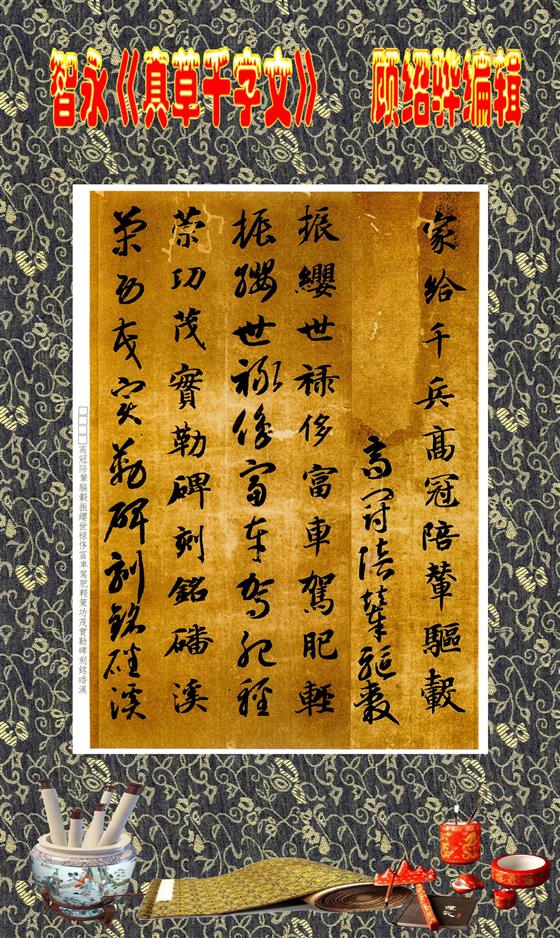 智永《真草千字文》 顾绍骅编辑
家給千兵高冠陪輦驅轂
高冠陪輦驅轂
振纓世禄侈富車駕肥輕
振纓世禄侈富車駕肥輕
策功茂實勒碑刻銘磻溪
策功茂實勒碑刻銘磻溪
□□□□高冠陪輦驅轂振纓世禄侈富車駕肥輕策功茂實勒碑刻銘磻溪